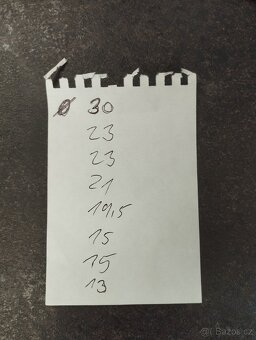 ø 30
23
23
21
19,5
15
15
13
© Bazos.cz